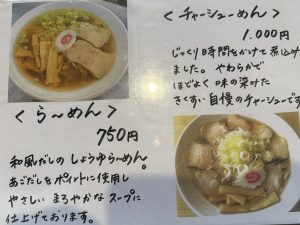 <チャーシューめん>
1.000円
じっくり時間をかけて煮込み
ました。やわらかで
ほどよく味の染みた
きくすい自慢のチャーシューです
<らーめん>
750円
和風だしのしょうゆらーめん。
あごだしをポイントに使用し
やさしいまろやかなスープに
仕上げております。